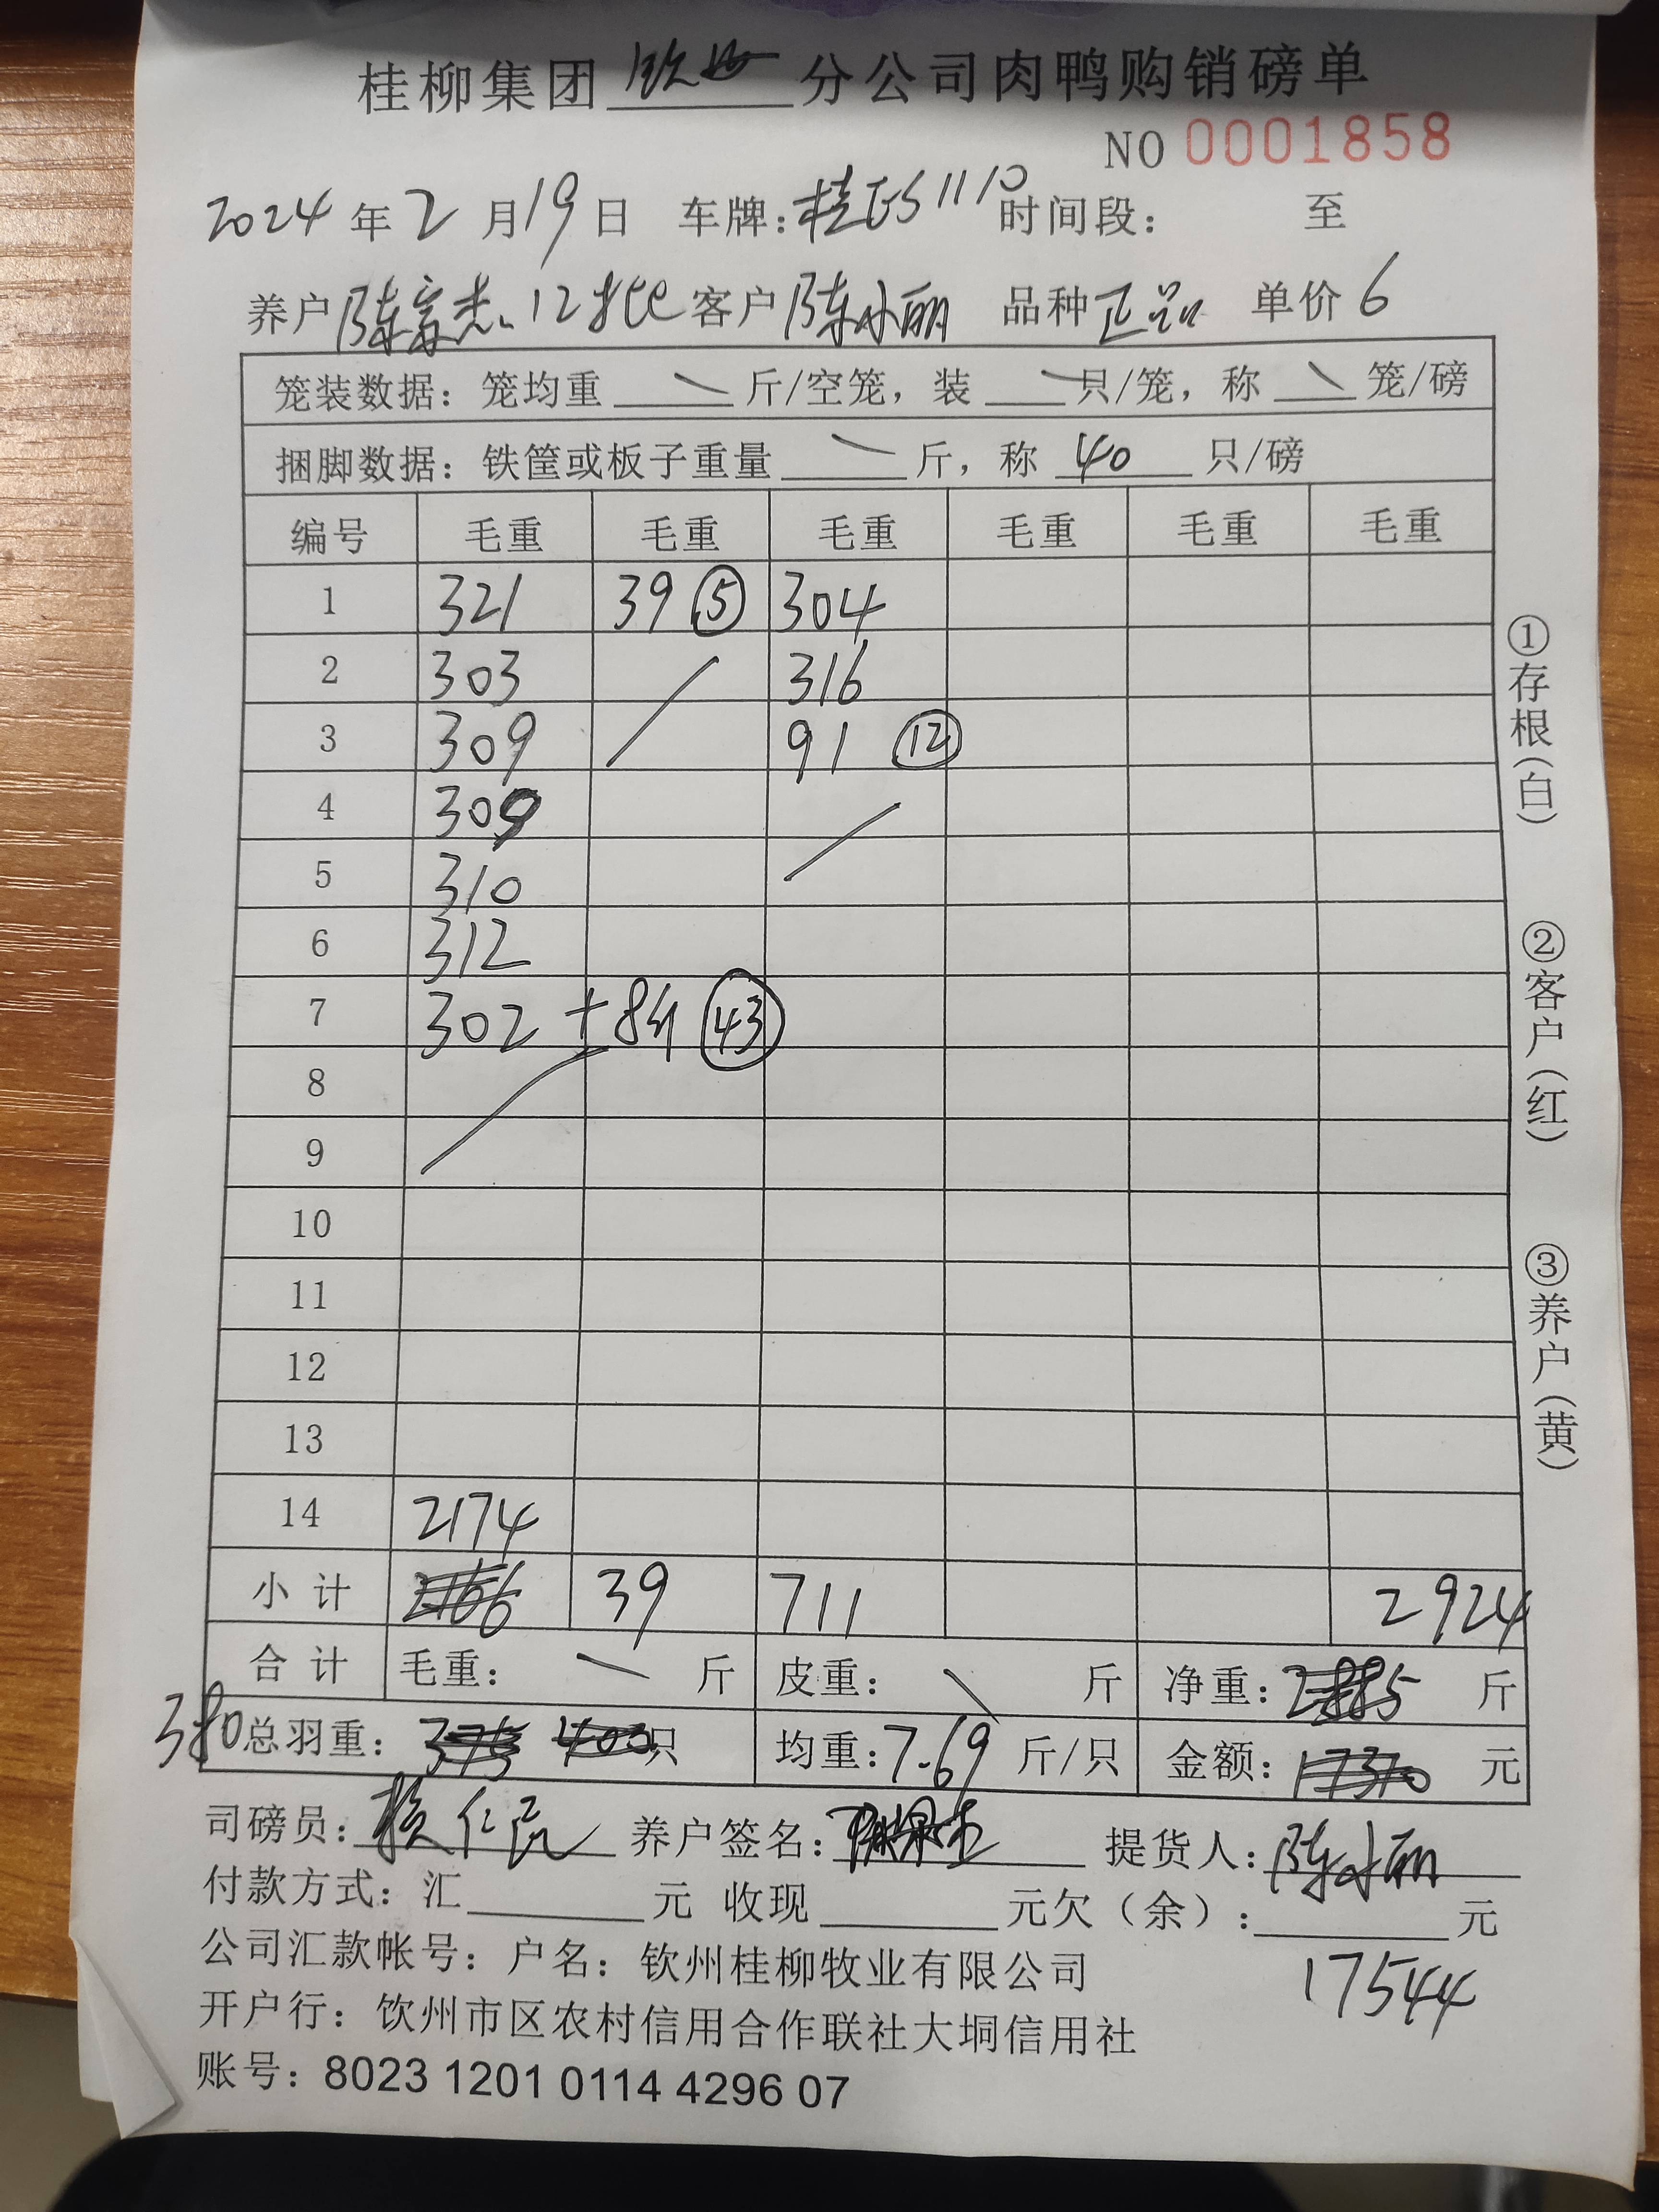 桂柳集团 钦州 分公司肉鸭购销磅单
NO 0001858
2024 年 2 月 19 日 车牌: 时间段: 至
养户 陈富杰 12批 客户 陈小丽 品种 正品 单价 6
笼装数据: 笼均重 斤/空笼, 装 只/笼, 称 笼/磅
捆脚数据: 铁筐或板子重量 斤, 称 40 只/磅
编号 毛重 毛重 毛重 毛重 毛重 毛重
1 321 39 ⑤ 304
2 303 316
3 309 91 ⑫
4 309
5 310
6 312
7 302 +8斤 ㊸
8
9
10
11
12
13
14 2174
小计 2166 39 711 2924
合计 毛重: 斤 皮重: 斤 净重: 2885 斤
380 总羽重: 375 400 只 均重: 7.69 斤/只 金额: 17310 元
司磅员: 养户签名: 提货人: 陈小丽
付款方式: 汇 元 收现 元欠(余): 元
公司汇款帐号: 户名: 钦州桂柳牧业有限公司
17544
开户行: 饮州市区农村信用合作联社大垌信用社
账号: 8023 1201 0114 4296 07
①存根(白)
②客户(红)
③养户(黄)